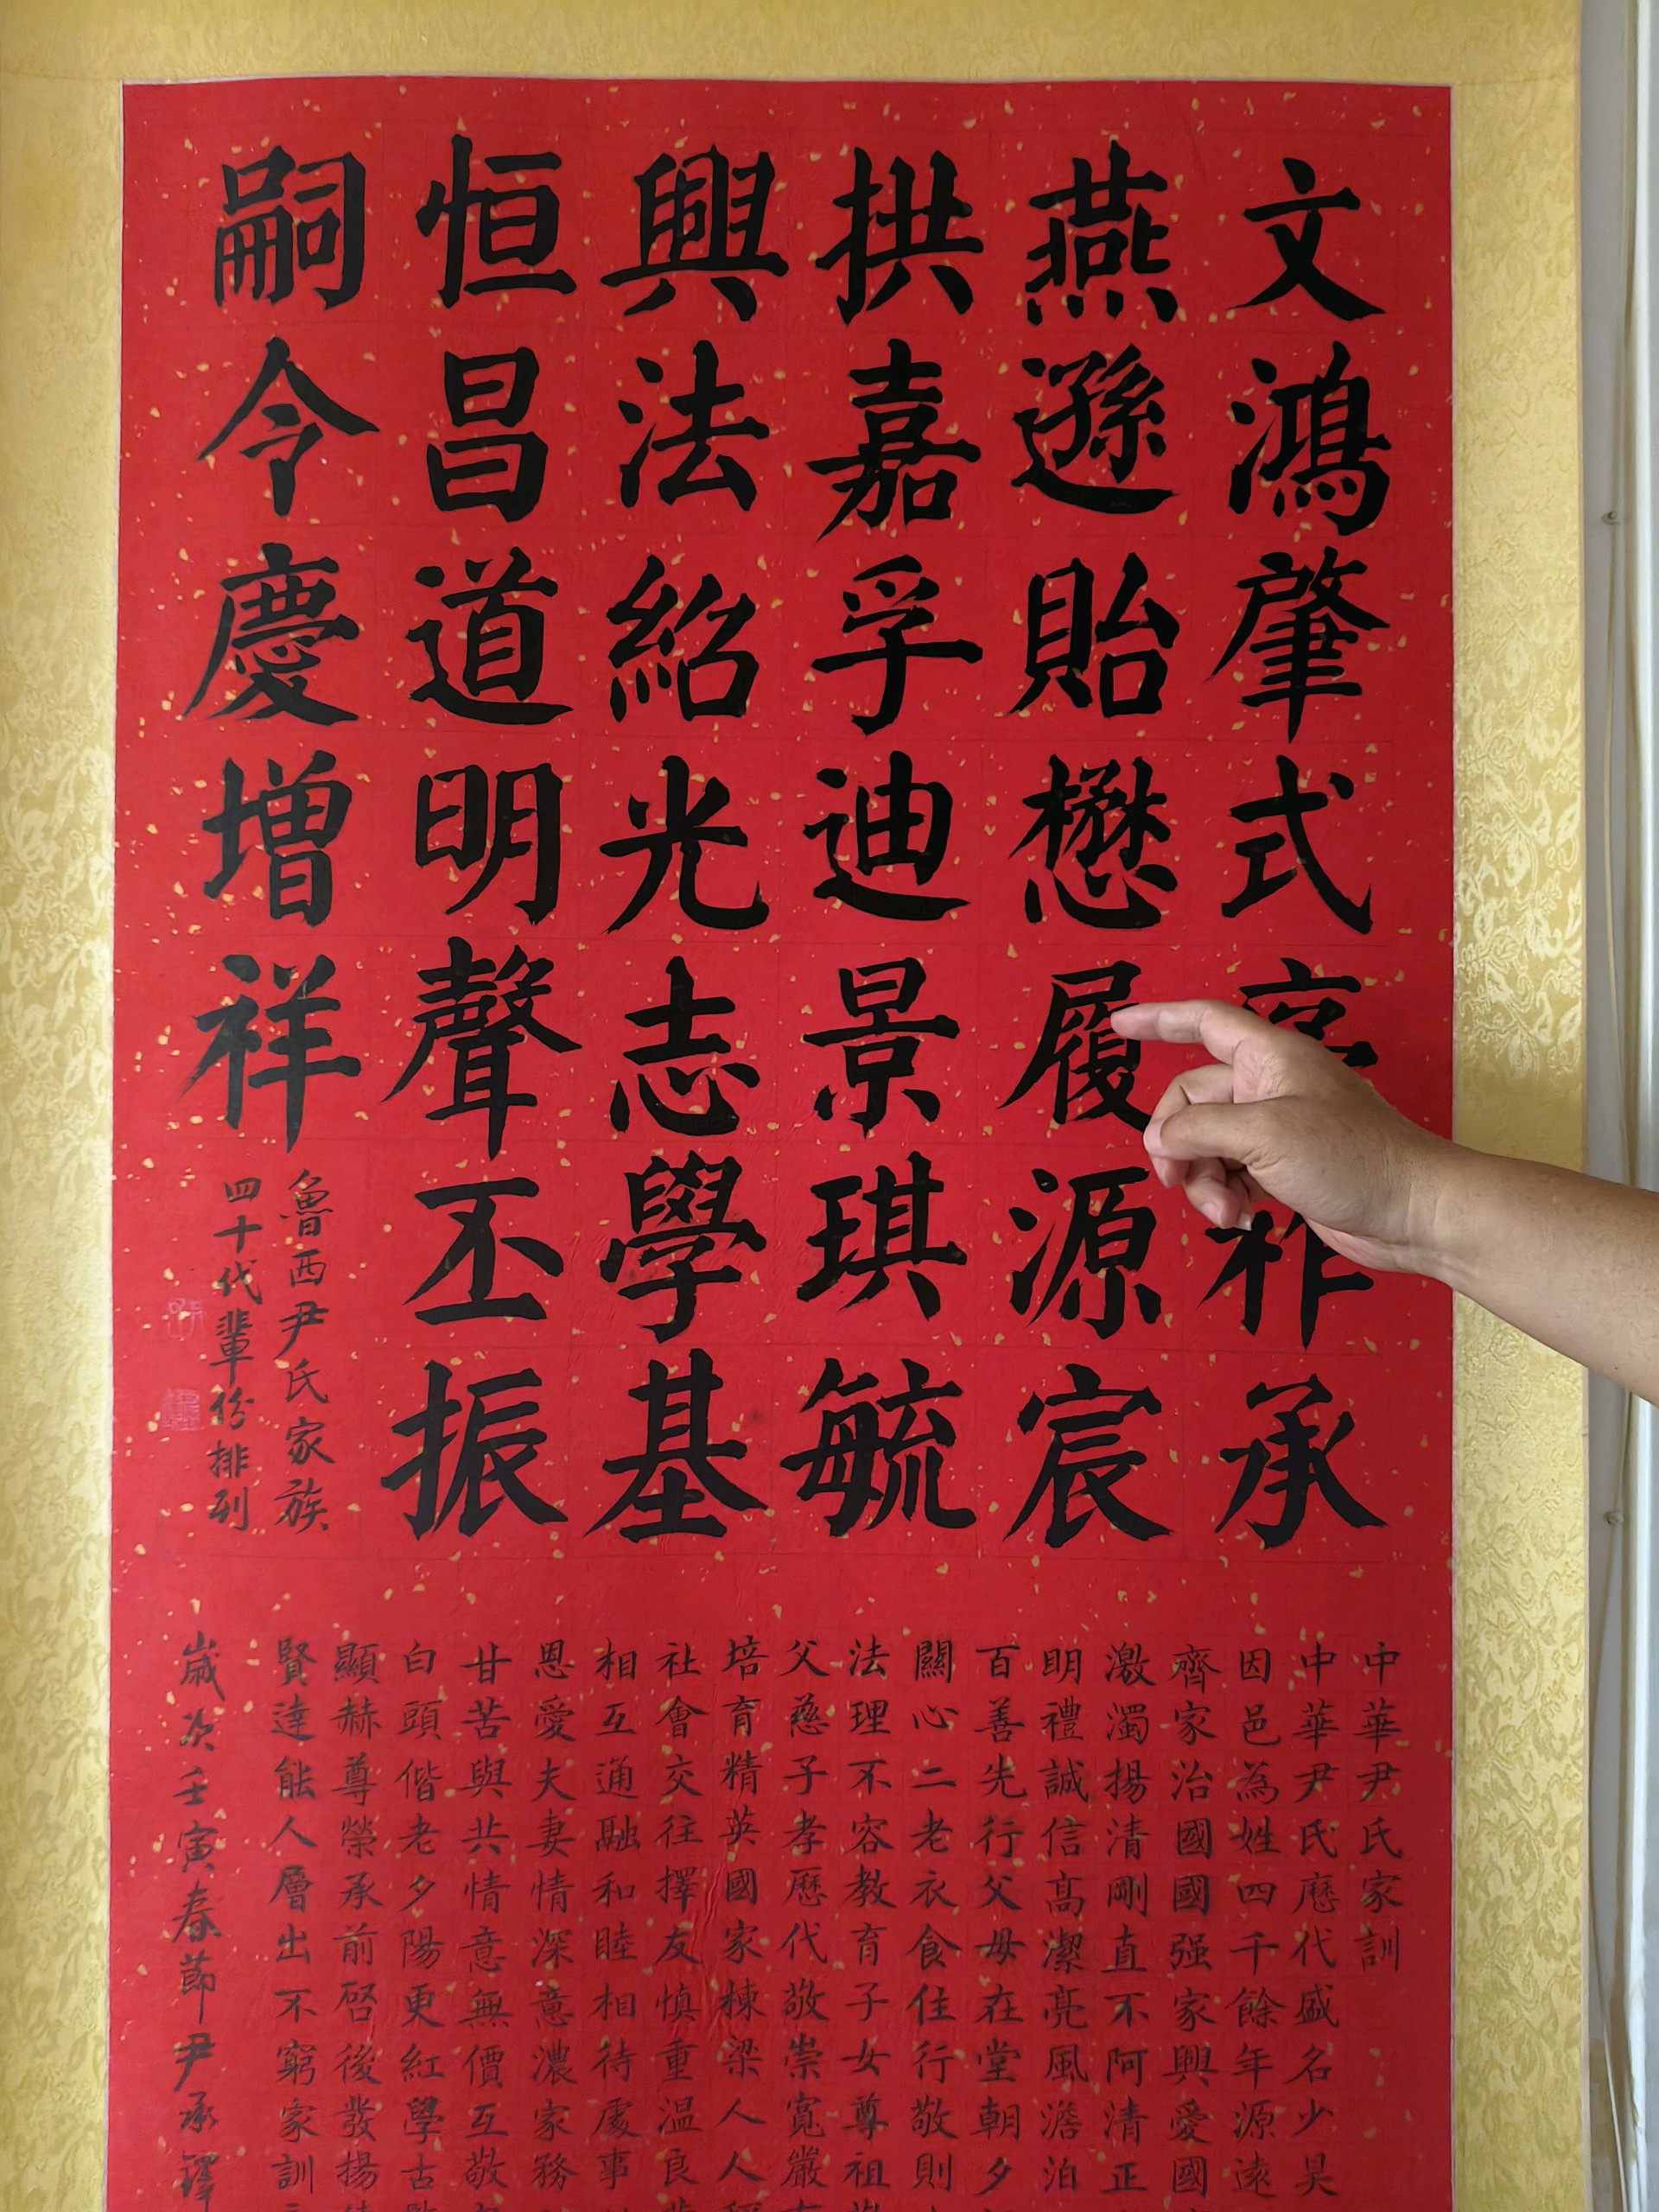 文鴻肇式祚承
燕遜貽懋履源宸
拱嘉孚迪景琪毓
興法紹光志學基
恒昌道明聲丕振
嗣令慶增祥
魯西尹氏家族
四十代輩份排列
中華尹氏家訓
中華尹氏歷代盛名少昊
因邑為姓四千餘年源遠
齊家治國國强家興愛國
激濁揚清剛直不阿清正
明禮誠信高潔亮風澹泊
百善先行父母在堂朝夕
關心二老衣食住行敬則
法理不容教育子女尊祖
父慈子孝歷代敬崇寬嚴
培育精英國家棟梁人人
社會交往擇友慎重温良
相互通融和睦相待處事
恩愛夫妻情深意濃家務
甘苦與共情意無價互敬
白頭偕老夕陽更紅學古
顯赫尊榮承前啓後發揚
賢達能人層出不窮家訓
歲次壬寅春節尹承鐸